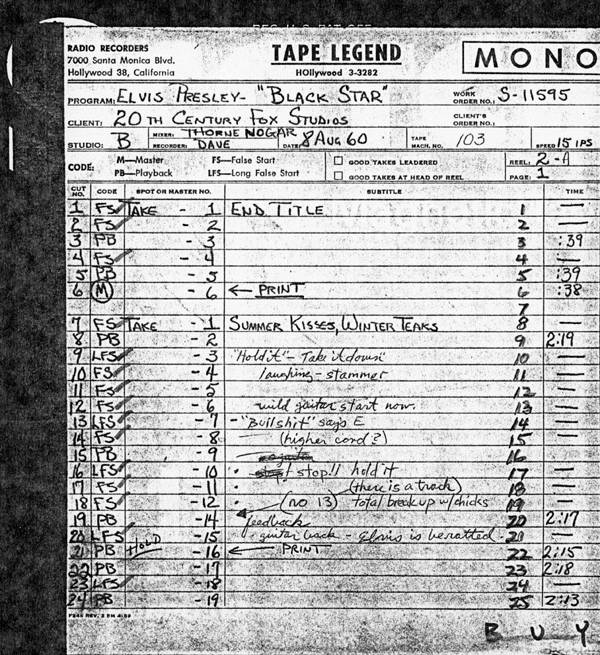 RADIO RECORDERS
7000 Santa Monica Blvd.
Hollywood 38, California
TAPE LEGEND
HOllywood 3-3282
MONO
PROGRAM: ELVIS PRESLEY - "BLACK STAR"
WORK ORDER NO.: S-11595
CLIENT: 20TH CENTURY FOX STUDIOS
CLIENT'S ORDER NO.:
STUDIO: B MIXER: THORNE NOGAR RECORDER: DAVE DATE: 8 AUG 60 TAPE MACH. NO. 103 SPEED 15 IPS
CODE: M—Master FS—False Start
PB—Playback LFS—Long False Start
GOOD TAKES LEADERED
GOOD TAKES AT HEAD OF REEL
REEL: 2-A
PAGE: 1
CUT NO. CODE SPOT OR MASTER NO. SUBTITLE TIME
1 FS TAKE - 1 END TITLE 1 —
2 FS - 2 2 —
3 PB - 3 3 :39
4 FS - 4 4 —
5 PB - 5 5 :39
6 M - 6 ← PRINT 6 :38
7
7 FS TAKE - 1 SUMMER KISSES, WINTER TEARS 8 —
8 PB - 2 9 2:19
9 LFS - 3 "Hold it" - Take it down" 10 —
10 FS - 4 laughing - stammer 11 —
11 FS - 5 12 —
12 FS - 6 wild guitar start now. 13 —
13 LFS - 7 - "Bullshit" says E 14 —
14 FS - 8 (higher cord?) 15 —
15 PB - 9 16
16 LFS - 10 stop!! hold it 17 —
17 FS - 11 (there is a track) 18 —
18 FS - 12 (no 13) total breakup w/chicks 19 —
19 PB - 14 feedback 20 2:17
20 LFS - 15 guitar back - Elvis is beratted - 21 —
21 PB HOLD - 16 ← PRINT 22 2:15
22 PB - 17 23 2:18
23 LFS - 18 24 —
24 PB - 19 25 2:13
B U Y